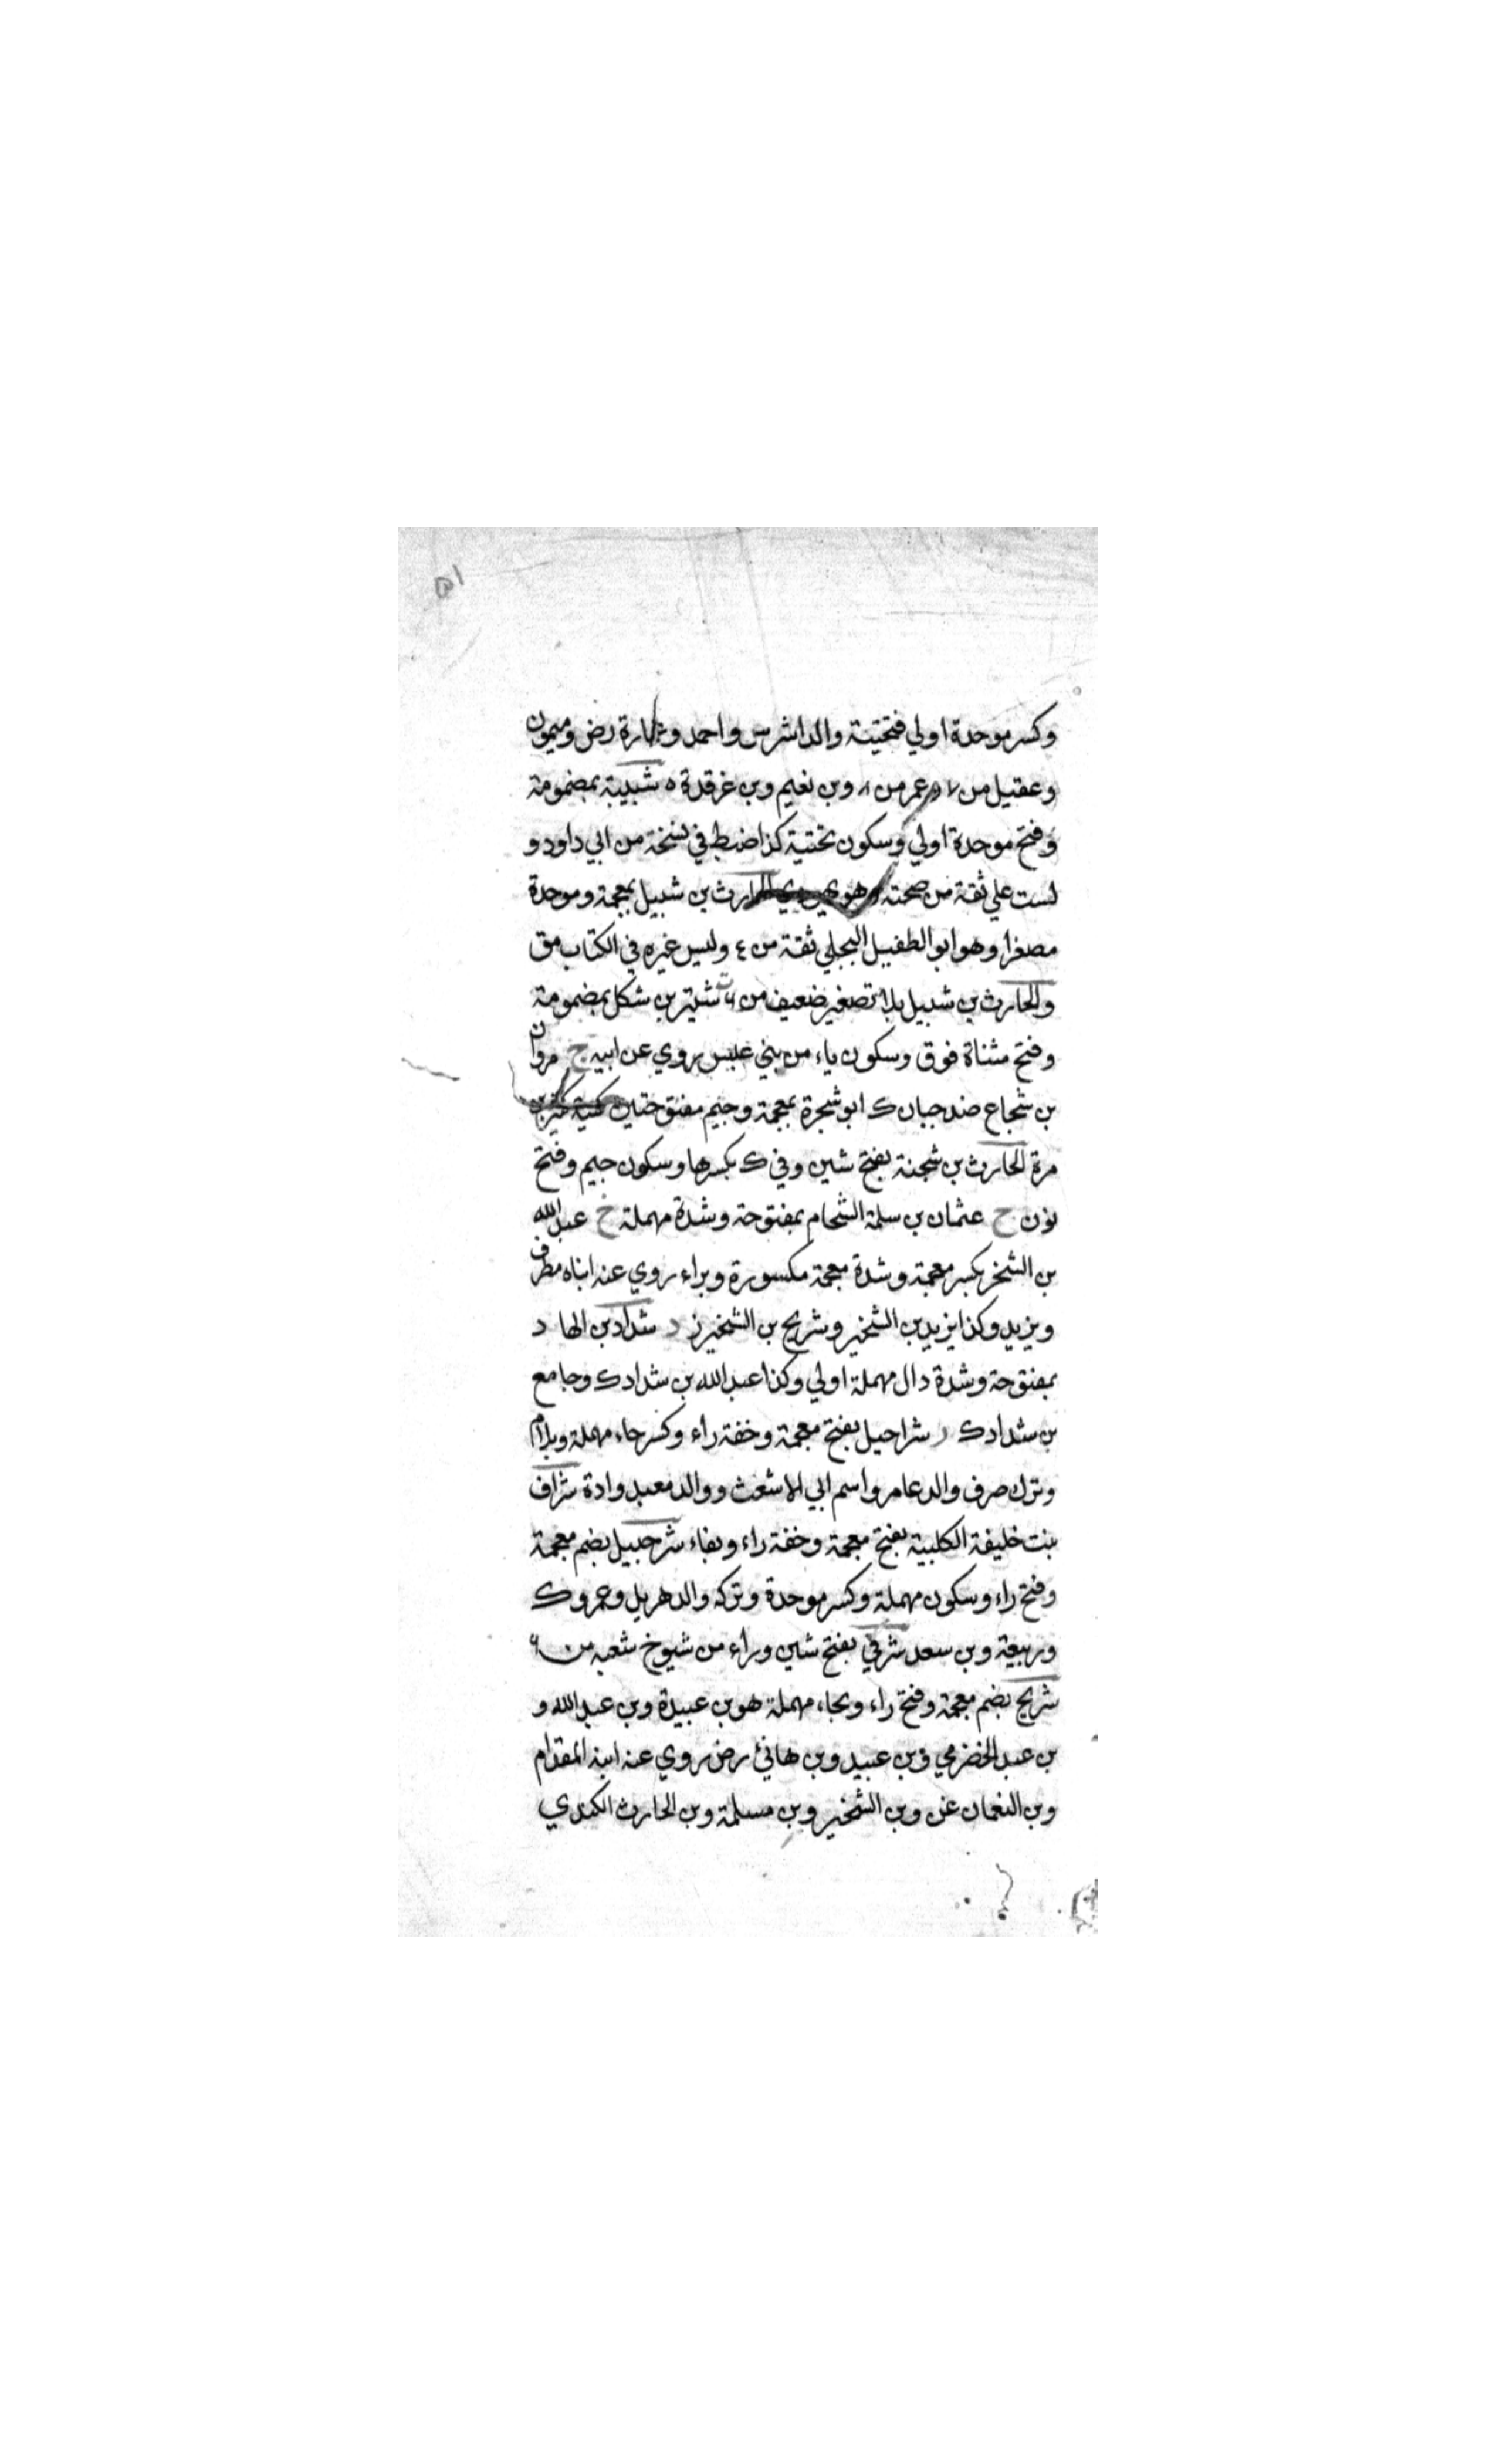 ٥١
وكسر موحدة اولي فتحتية والد اشرس واحمد و رض وميمون
وعقيل من ٧ عمر من ٨ وبن نعيم وبن غرقدة ٥ شبيبة بمضمومة
وفتح موحدة اولي وسكون تحتية كذا ضبط في نسخة من ابي داود و
لست علي ثقة من صحته الحارث بن شبيل بمعجمة وموحدة
مصغرا وهو ابو الطفيل البجلي ثقة من ٤ وليس غيره في الكتاب مق
والحارث بن شبيل بلا تصغير ضعيف من ٦ شتير بن شكل بمضمومة
وفتح مثناة فوق وسكون ياء من بني عبس روي عن ابيه ج مروان
بن شجاع ضد جبان ك ابو شجرة بمعجمة وجيم مفتوحتين كنية كثير بن
مرة الحارث بن شجنة بفتح شين وفي ك بكسرها وسكون جيم وفتح
نون ح عثمان بن سلمة الشحام بمفتوحة وشدة مهملة خ عبد الله
بن الشخر بكسر معجمة وشدة معجمة مكسورة وبراء روي عنه ابناه مطرف
ويزيد وكذا يزيد بن الشخير وشريح بن الشخير ز د شداد بن الهاد
بمفتوحة وشدة دال مهملة اولي وكذا عبد الله بن شداد ك وجامع
بن شداد ك ر شراحيل بفتح معجمة وخفة راء وكسر حاء مهملة وبلام
وترك صرف والد عامر واسم ابي الاشعث ووالد معبد وادة شراف
بنت خليفة الكلبية بفتح معجمة وخفة راء وبفاء شرحبيل بضم معجمة
وفتح راء وسكون مهملة وكسر موحدة وتركه والد هزيل وعمرو ك
وربيعة وبن سعد شرقي بفتح شين وراء من شيوخ شعبه من ٦
شريح بضم معجمة وفتح راء وبحاء مهملة هو بن عبيدة وبن عبد الله و
بن عبد الحضرمي وبن عبيد وبن هانئ رض روي عنه ابنه المقدام
وبن النعمان عن وبن الشخير وبن مسلمة وبن الحارث الكندي